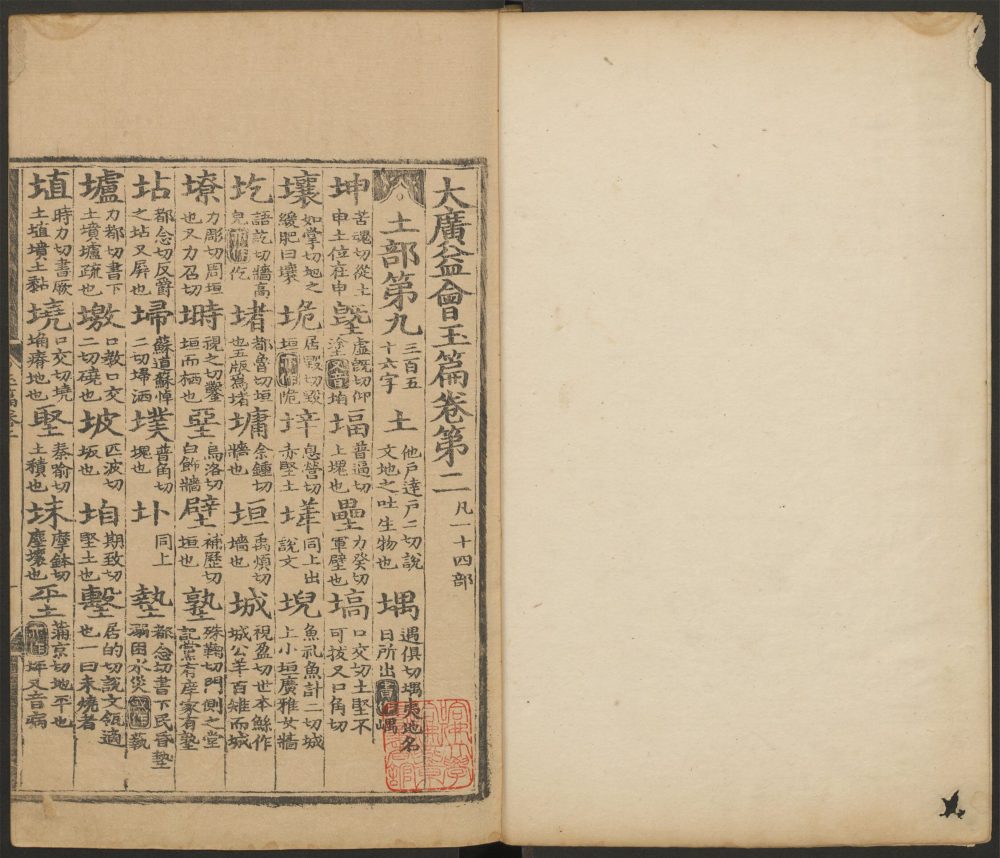 大廣益會玉篇卷第二 凡一十四部
土部第九 三百五十六字 土 他戶達戶二切說文地之吐生物也 堣 遇俱切堣夷地名日所出 嵎
坤 苦魂切從土申土位在申 塈 虛旣切仰塗 堛 普逼切土塊也 壘 力癸切軍壁也 塙 口交切土堅不可拔又口角切
壤 如掌切地之緩肥曰壤 垝 居毀切毀垣 垝 垶 息營切赤堅土 同上出說文 堄 魚禮魚計二切城上小垣廣雅女牆
圪 語訖切牆高皃 仡 堵 都魯切垣也五版爲堵 墉 余鍾切牆也 垣 禹煩切墻也 城 視盈切世本鯀作城公羊百雉而城
㙩 力彫切周垣也又力召切 塒 視之切鑿垣而栖也 堊 烏洛切白飾牆 壁 補歷切垣也 塾 殊鞫切門側之堂記黨有庠家有塾
坫 都念切反爵之坫又屏也 埽 蘇道蘇悼二切埽洒 墣 普角切塊也 圤 同上 墊 都念切書下民昏墊溺困水災
壚 力都切書下土墳壚疏也 墽 口敎口交二切磽也 坡 匹波切坂也 垍 期致切堅土也 墼 居的切說文瓴適也一曰未燒者
埴 時力切書厥土埴墳土黏 墝 口交切墝埆瘠地也 堅 秦喻切土積也 㙁 摩鉢切塵壞也 蒲京切地平也 坪又音病